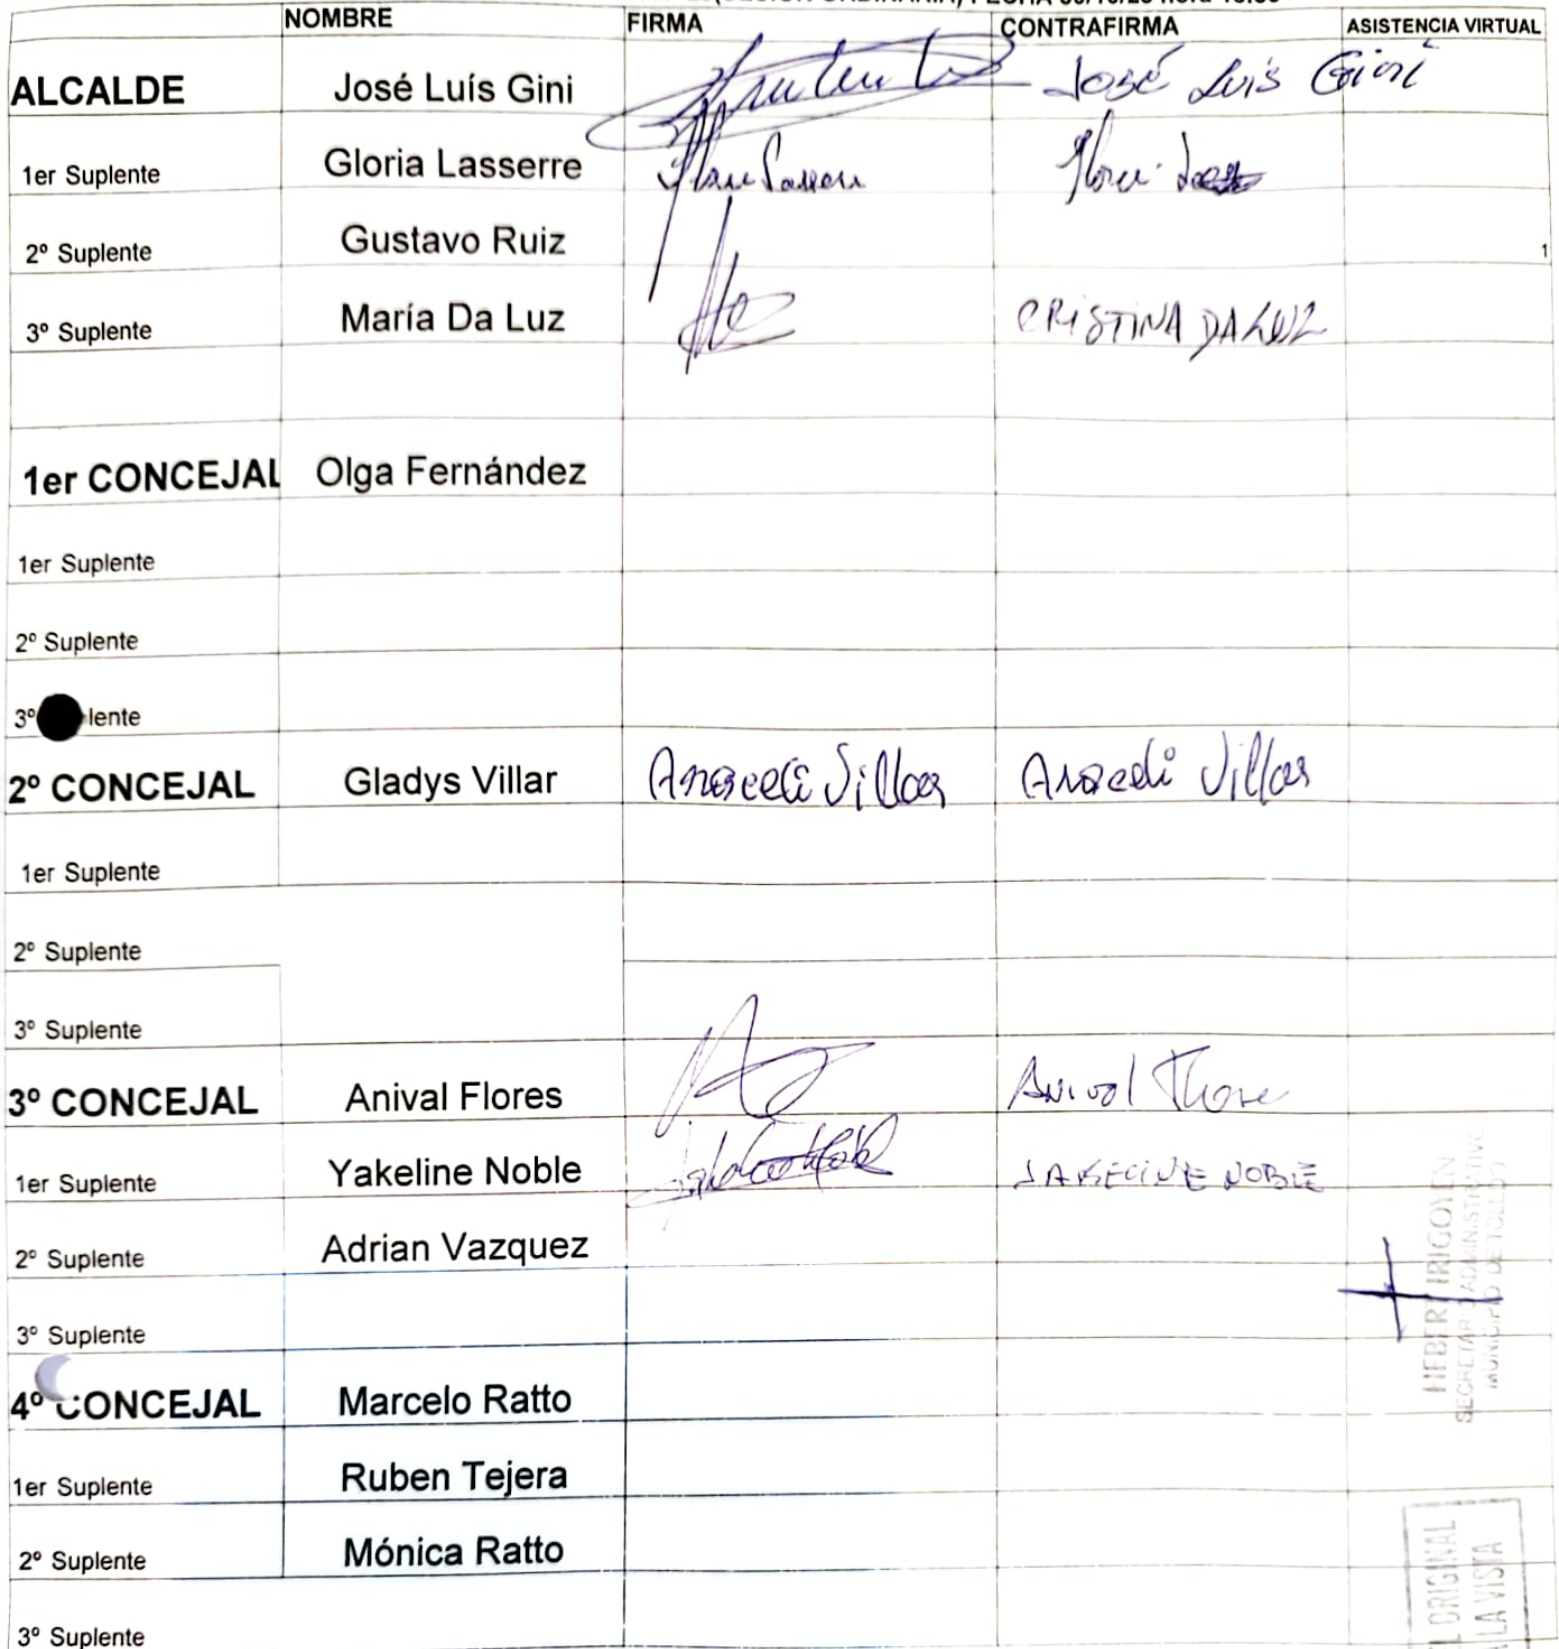 (SESION ORDINARIA) FECHA
NOMBRE FIRMA CONTRAFIRMA ASISTENCIA VIRTUAL
ALCALDE José Luís Gini José Luis Gini
1er Suplente Gloria Lasserre
2º Suplente Gustavo Ruiz 1
3º Suplente María Da Luz CRISTINA DA LUZ
1er CONCEJAL Olga Fernández
1er Suplente
2º Suplente
3º lente
2º CONCEJAL Gladys Villar Araceli Villar Araceli Villar
1er Suplente
2º Suplente
3º Suplente
3º CONCEJAL Anival Flores Anival Flore
1er Suplente Yakeline Noble JAKELINE NOBLE
2º Suplente Adrian Vazquez
3º Suplente
4º CONCEJAL Marcelo Ratto
1er Suplente Ruben Tejera
2º Suplente Mónica Ratto
3º Suplente
HEBERT IRIGOYEN
SECRETARIO ADMINISTRATIVO
MUNICIPIO DE
ORIGINAL
LA VISTA